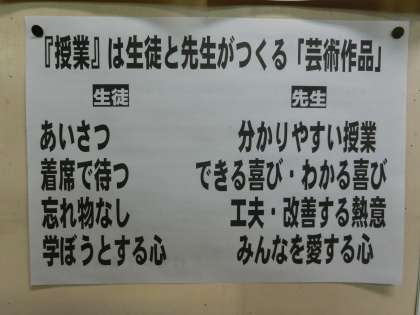 『授業』は生徒と先生がつくる「芸術作品」
生徒
あいさつ
着席で待つ
忘れ物なし
学ぼうとする心
先生
分かりやすい授業
できる喜び・わかる喜び
工夫・改善する熱意
みんなを愛する心